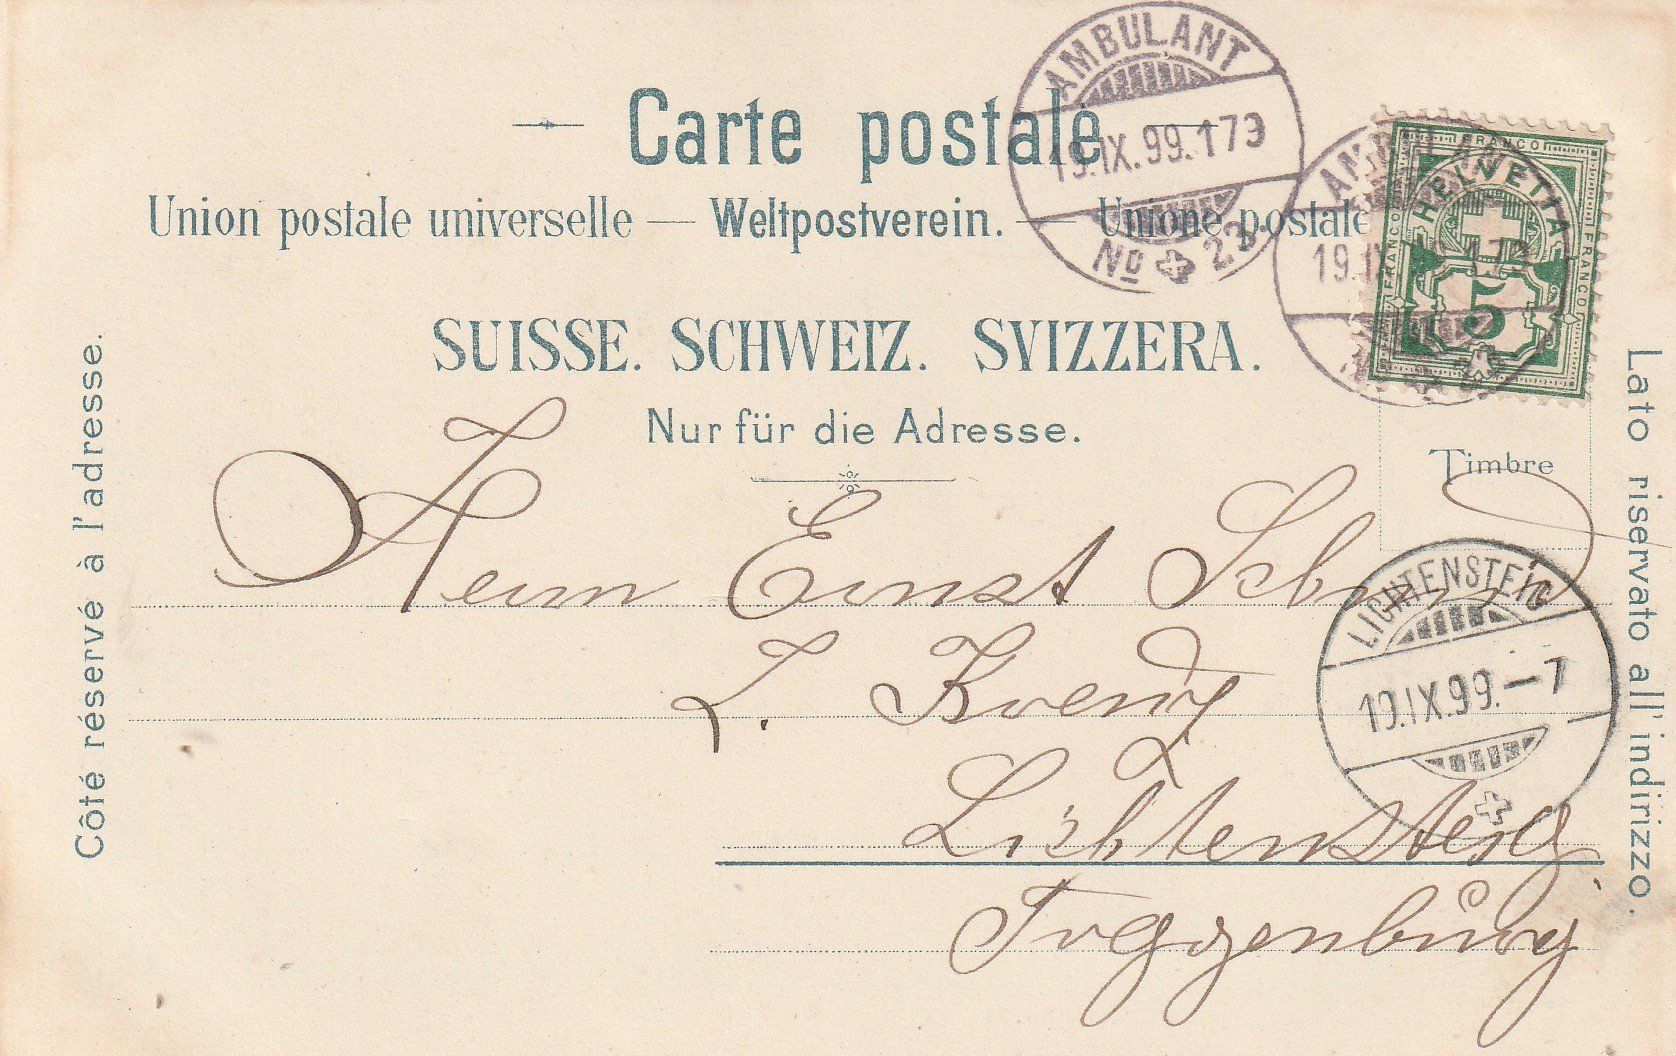 AMBULANT
19.IX.99.173
No 23.
Carte postale
Union postale universelle — Weltpostverein. — Unione postale
SUISSE. SCHWEIZ. SVIZZERA.
Nur für die Adresse.
FRANCO
FRANCO
FRANCO
HELVETIA
5
19.IX
Timbre
Côté réservé à l'adresse.
Lato riservato all'indirizzo.
Herrn Ernst Schmid
z. Kreuz
Lichtensteig
Toggenburg
LICHTENSTEIG
19.IX.99.–7